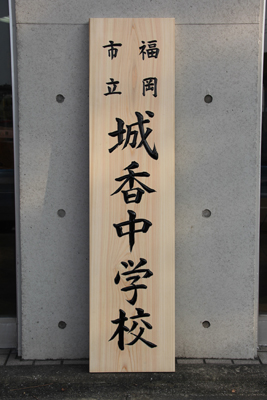 福岡
市立
城香中学校